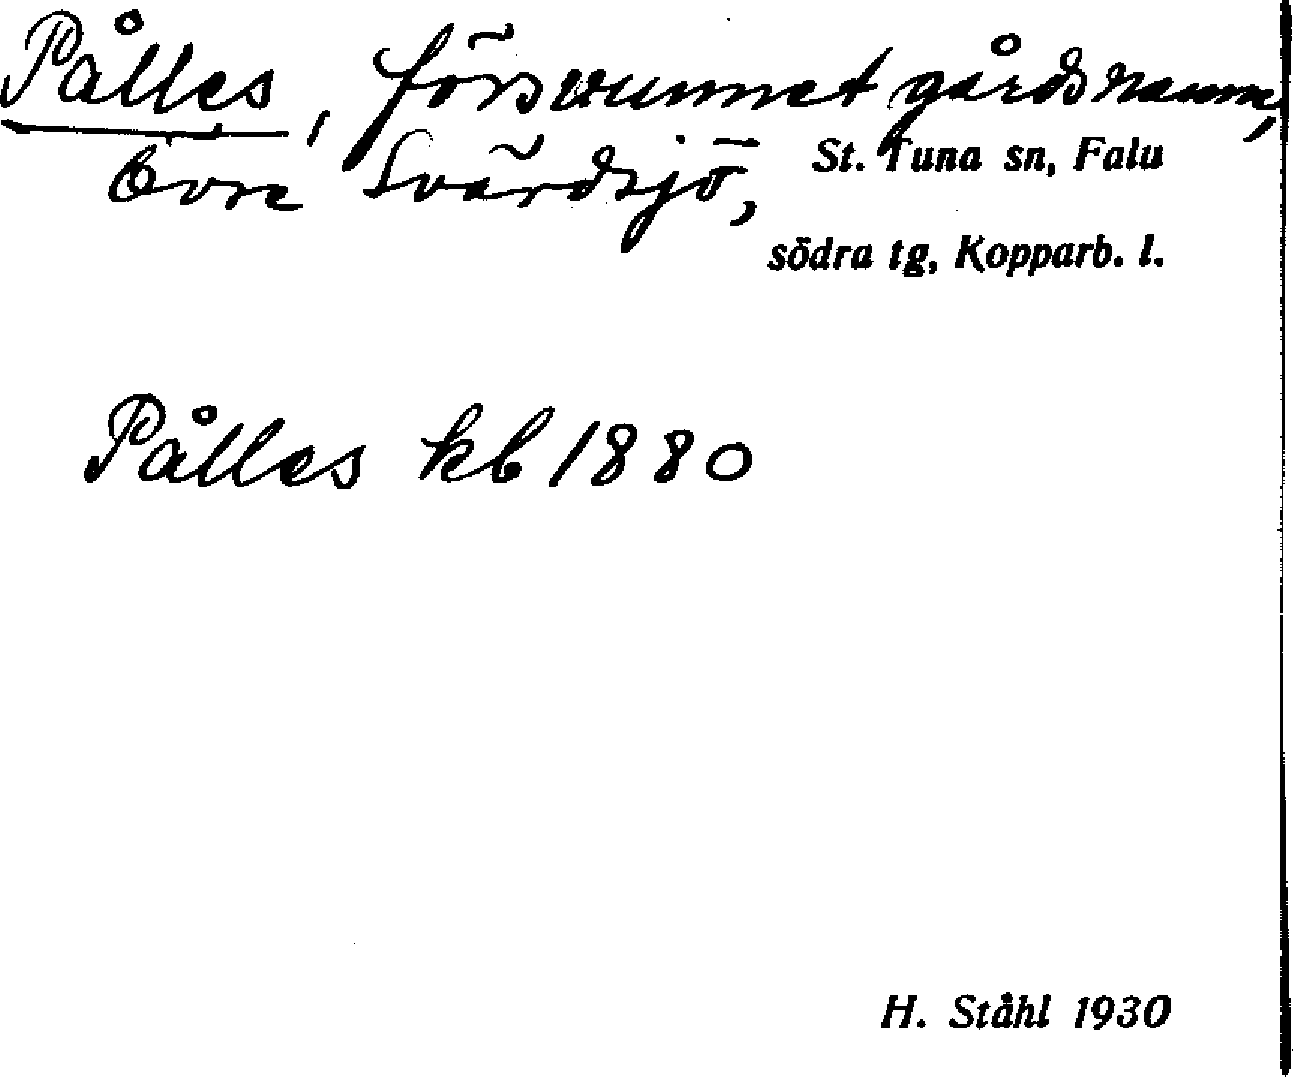 Pålles, försvunnet gårdsnamn,
Övre Svärdsjö, St. Tuna sn, Falu
södra tg, Kopparb. l.
Pålles kb 1880
H. Ståhl 1930